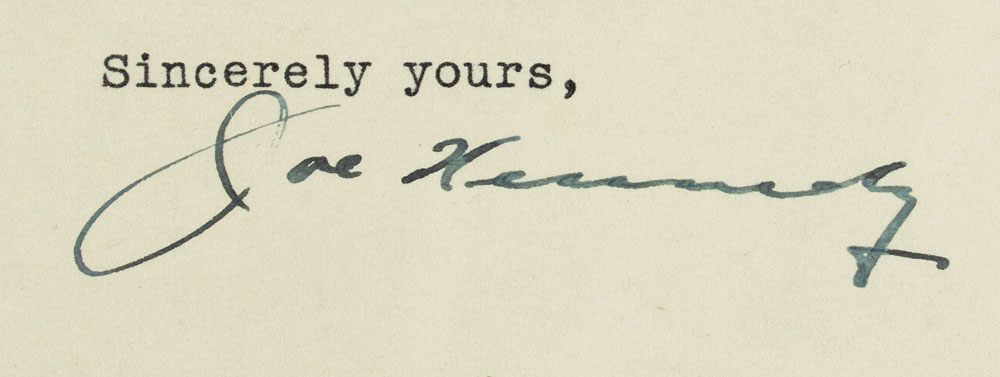 Sincerely yours,
Joe Kennedy